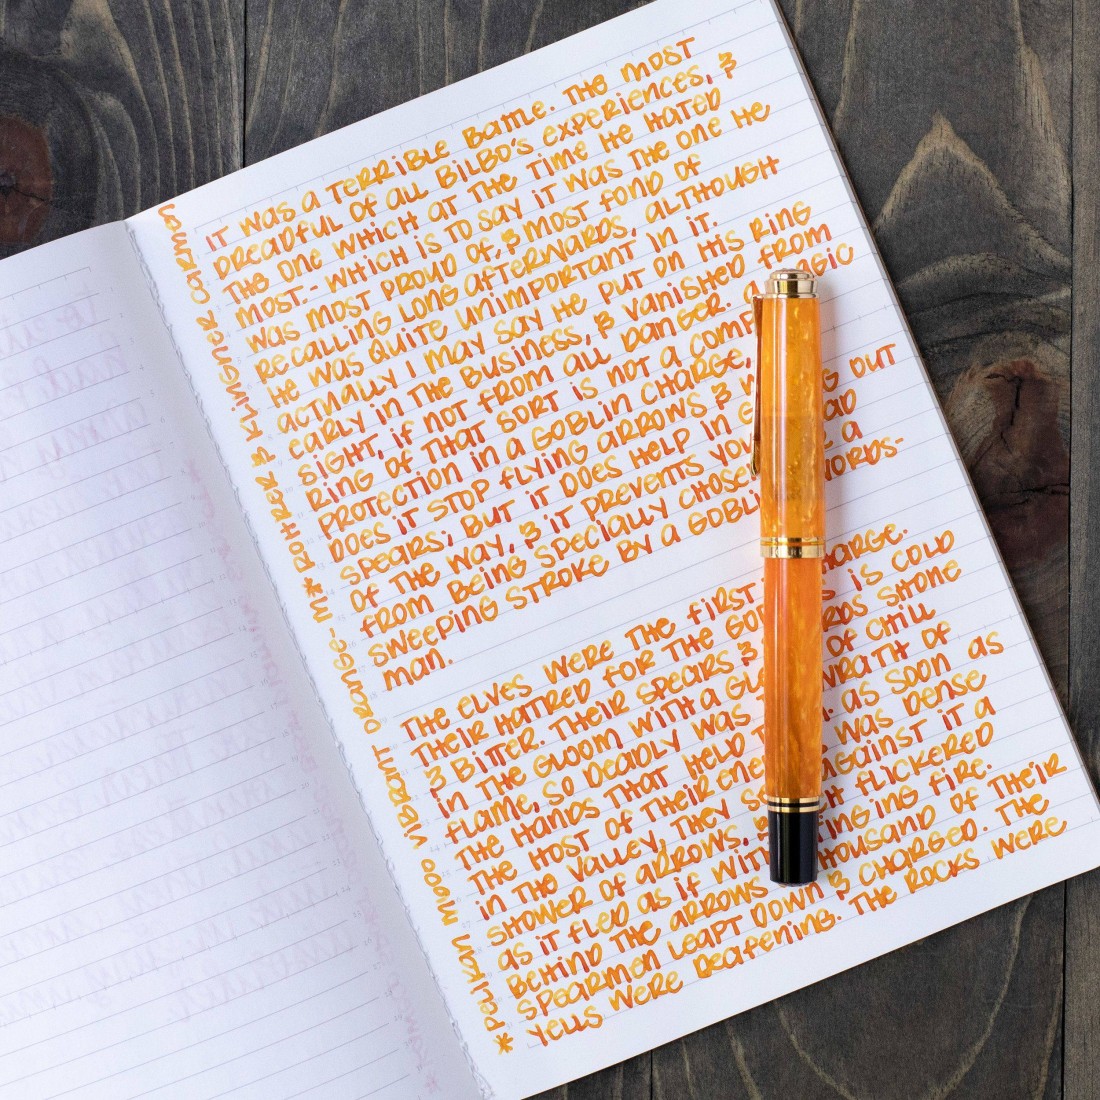 IT WAS A TERRIBLE BATTLE. THE MOST
DREADFUL OF ALL BILBO'S EXPERIENCES, &
THE ONE WHICH AT THE TIME HE HATED
MOST.- WHICH IS TO SAY IT WAS THE ONE HE
WAS MOST PROUD OF, & MOST FOND OF
RECALLING LONG AFTERWARDS, ALTHOUGH
HE WAS QUITE UNIMPORTANT IN IT.
ACTUALLY I MAY SAY HE PUT ON HIS RING
EARLY IN THE BUSINESS, & VANISHED FROM
SIGHT, IF NOT FROM ALL DANGER. A MAGIC
RING OF THAT SORT IS NOT A
PROTECTION IN A GOBLIN CHARGE,
DOES IT STOP FLYING ARROWS &
SPEARS; BUT IT DOES HELP IN OUT
OF THE WAY, & IT PREVENTS
FROM BEING SPECIALLY A
SWEEPING STROKE BY A
MAN.
THE ELVES WERE THE FIRST CHARGE.
THEIR HATRED FOR THE IS COLD
& BITTER. THEIR SPEARS & SHONE
IN THE GLOOM WITH A OF CHILL
FLAME, SO DEADLY WAS WRATH OF
THE HANDS THAT HELD AS SOON AS
THE HOST OF THEIR WAS DENSE
IN THE VALLEY, THEY AGAINST IT A
SHOWER OF ARROWS, & FLICKERED
AS IT FLED AS IF WITH FIRE.
BEHIND THE ARROWS THOUSAND OF THEIR
SPEARMEN LEAPT DOWN & CHARGED. THE
YELLS WERE DEAFENING. THE ROCKS WERE
* PELIKAN M600 VIBRANT ORANGE- M * ROHRER & KLINGNER CARMEN